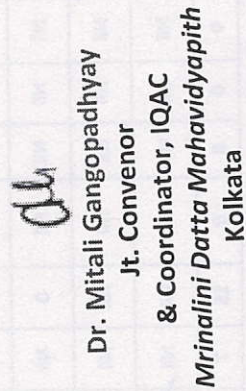 Dr. Mitali Gangopadhyay
Jt. Convenor
& Coordinator, IQAC
Mrinalini Datta Mahavidyapith
Kolkata